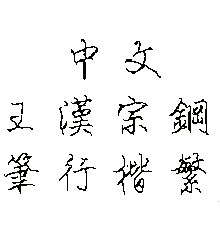 中文
王漢宗鋼
筆行楷繁